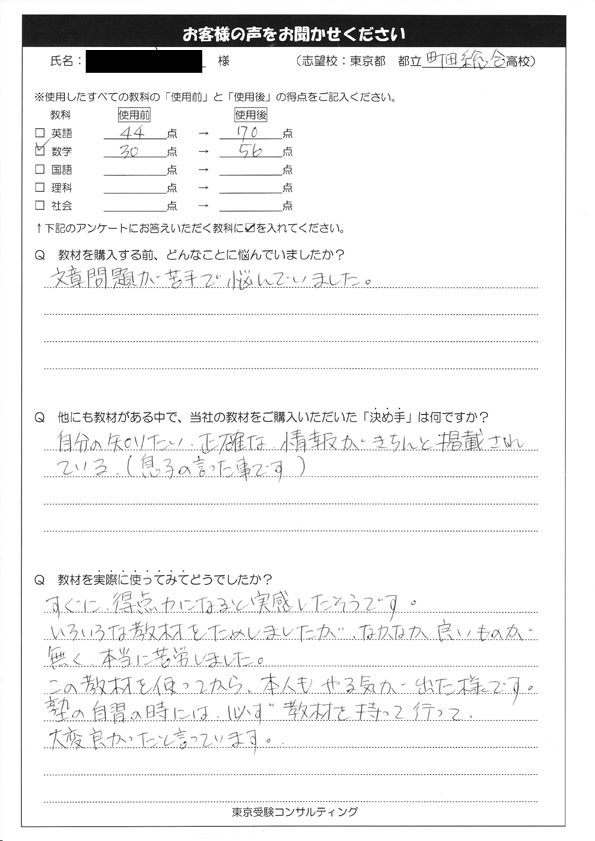 お客様の声をお聞かせください
氏名： 様 （志望校：東京都 都立町田総合高校）
※使用したすべての教科の「使用前」と「使用後」の得点をご記入ください。
教科 使用前 使用後
□ 英語 44点 → 70点
☑ 数学 30点 → 56点
□ 国語 点 → 点
□ 理科 点 → 点
□ 社会 点 → 点
↑下記のアンケートにお答えいただく教科に☑を入れてください。
Q 教材を購入する前、どんなことに悩んでいましたか？
文章問題が苦手で悩んでいました。
Q 他にも教材がある中で、当社の教材をご購入いただいた「決め手」は何ですか？
自分の知りたい、正確な、情報がきちんと掲載され
ている。（息子の言った事です）
Q 教材を実際に使ってみてどうでしたか？
すぐに、得点力になると実感したそうです。
いろいろな教材をためしましたが、なかなか良いものが
無く、本当に苦労しました。
この教材を使ってから、本人もやる気が出た様です。
塾の自習の時には、必ず教材を持って行って、
大変良かったと言っています。
東京受験コンサルティング